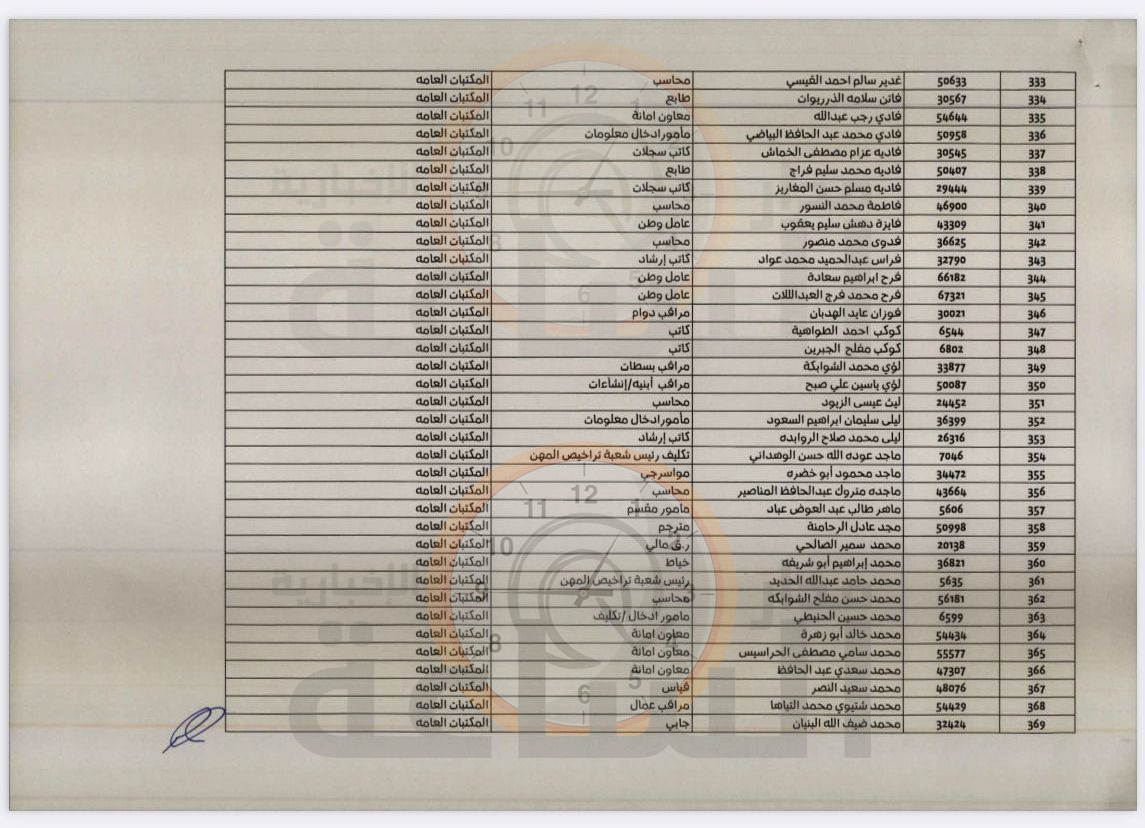 333 50633 غدير سالم احمد القيسي محاسب المكتبات العامه
334 30567 فاتن سلامه الذرريوات طابع المكتبات العامه
335 54644 فادي رجب عبدالله معاون امانة المكتبات العامه
336 50958 فادي محمد عبد الحافظ البياضي مأمورادخال معلومات المكتبات العامه
337 30545 فاديه عزام مصطفى الخماش كاتب سجلات المكتبات العامه
338 50407 فاديه محمد سليم فراج طابع المكتبات العامه
339 29444 فاديه مسلم حسن المغاريز كاتب سجلات المكتبات العامه
340 46900 فاطمة محمد النسور محاسب المكتبات العامه
341 43309 فايزة دهش سليم يعقوب عامل وطن المكتبات العامه
342 36625 فدوى محمد منصور محاسب المكتبات العامه
343 32790 فراس عبدالحميد محمد عواد كاتب إرشاد المكتبات العامه
344 66182 فرح ابراهيم سعادة عامل وطن المكتبات العامه
345 67321 فرح محمد فرج العبداللات عامل وطن المكتبات العامه
346 30021 فوزان عايد الهدبان مراقب دوام المكتبات العامه
347 6544 كوكب احمد الطواهية كاتب المكتبات العامه
348 6802 كوكب مفلح الجبرين كاتب المكتبات العامه
349 33877 لؤي محمد الشوابكة مراقب بسطات المكتبات العامه
350 50087 لؤي ياسين علي صبح مراقب أبنيه/إنشأءات المكتبات العامه
351 24452 ليث عيسى الزيود محاسب المكتبات العامه
352 36399 ليلى سليمان ابراهيم السعود مأمورادخال معلومات المكتبات العامه
353 26316 ليلى محمد صلاح الروابده كاتب إرشاد المكتبات العامه
354 7046 ماجد عوده الله حسن الوهداني تكليف رئيس شعبة تراخيص المهن المكتبات العامه
355 34472 ماجد محمود أبو خضره مواسرجي المكتبات العامه
356 43664 ماجده متروك عبدالحافظ المناصير محاسب المكتبات العامه
357 5606 ماهر طالب عبد العوض عباد مامور مقسم المكتبات العامه
358 50998 مجد عادل الرحامنة مترجم المكتبات العامه
359 20138 محمد سمير الصالحي ر.ق مالي المكتبات العامه
360 36821 محمد إبراهيم أبو شريفه خياط المكتبات العامه
361 5635 محمد حامد عبدالله الحديد رئيس شعبة تراخيص المهن المكتبات العامه
362 56181 محمد حسن مفلح الشوابكه محاسب المكتبات العامه
363 6599 محمد حسين الحنيطي مامور ادخال /تكليف المكتبات العامه
364 54434 محمد خالد أبو زهرة معاون امانة المكتبات العامه
365 55577 محمد سامي مصطفى الحراسيس معاون امانة المكتبات العامه
366 47307 محمد سعدي عبد الحافظ معاون امانة المكتبات العامه
367 48076 محمد سعيد النصر قياس المكتبات العامه
368 54429 محمد شتيوي محمد التياها مراقب عمال المكتبات العامه
369 32424 محمد ضيف الله البنيان جابي المكتبات العامه